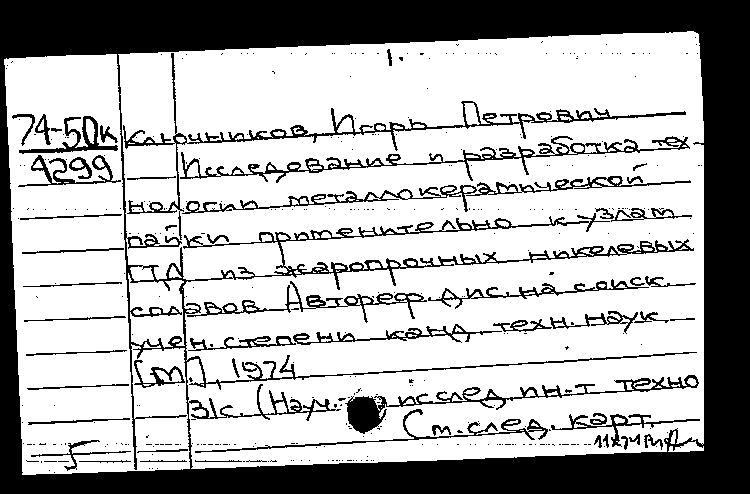 1.
74-50к
4299
Ключников, Игорь Петрович
Исследование и разработка тех-
нологии металлокерамической
пайки применительно к узлам
ГТД из жаропрочных никелевых
сплавов. Автореф. дис. на соиск.
учен. степени канд. техн. наук.
[М.], 1974.
31с. (Науч.- исслед. ин-т техно
См. след. карт.
5